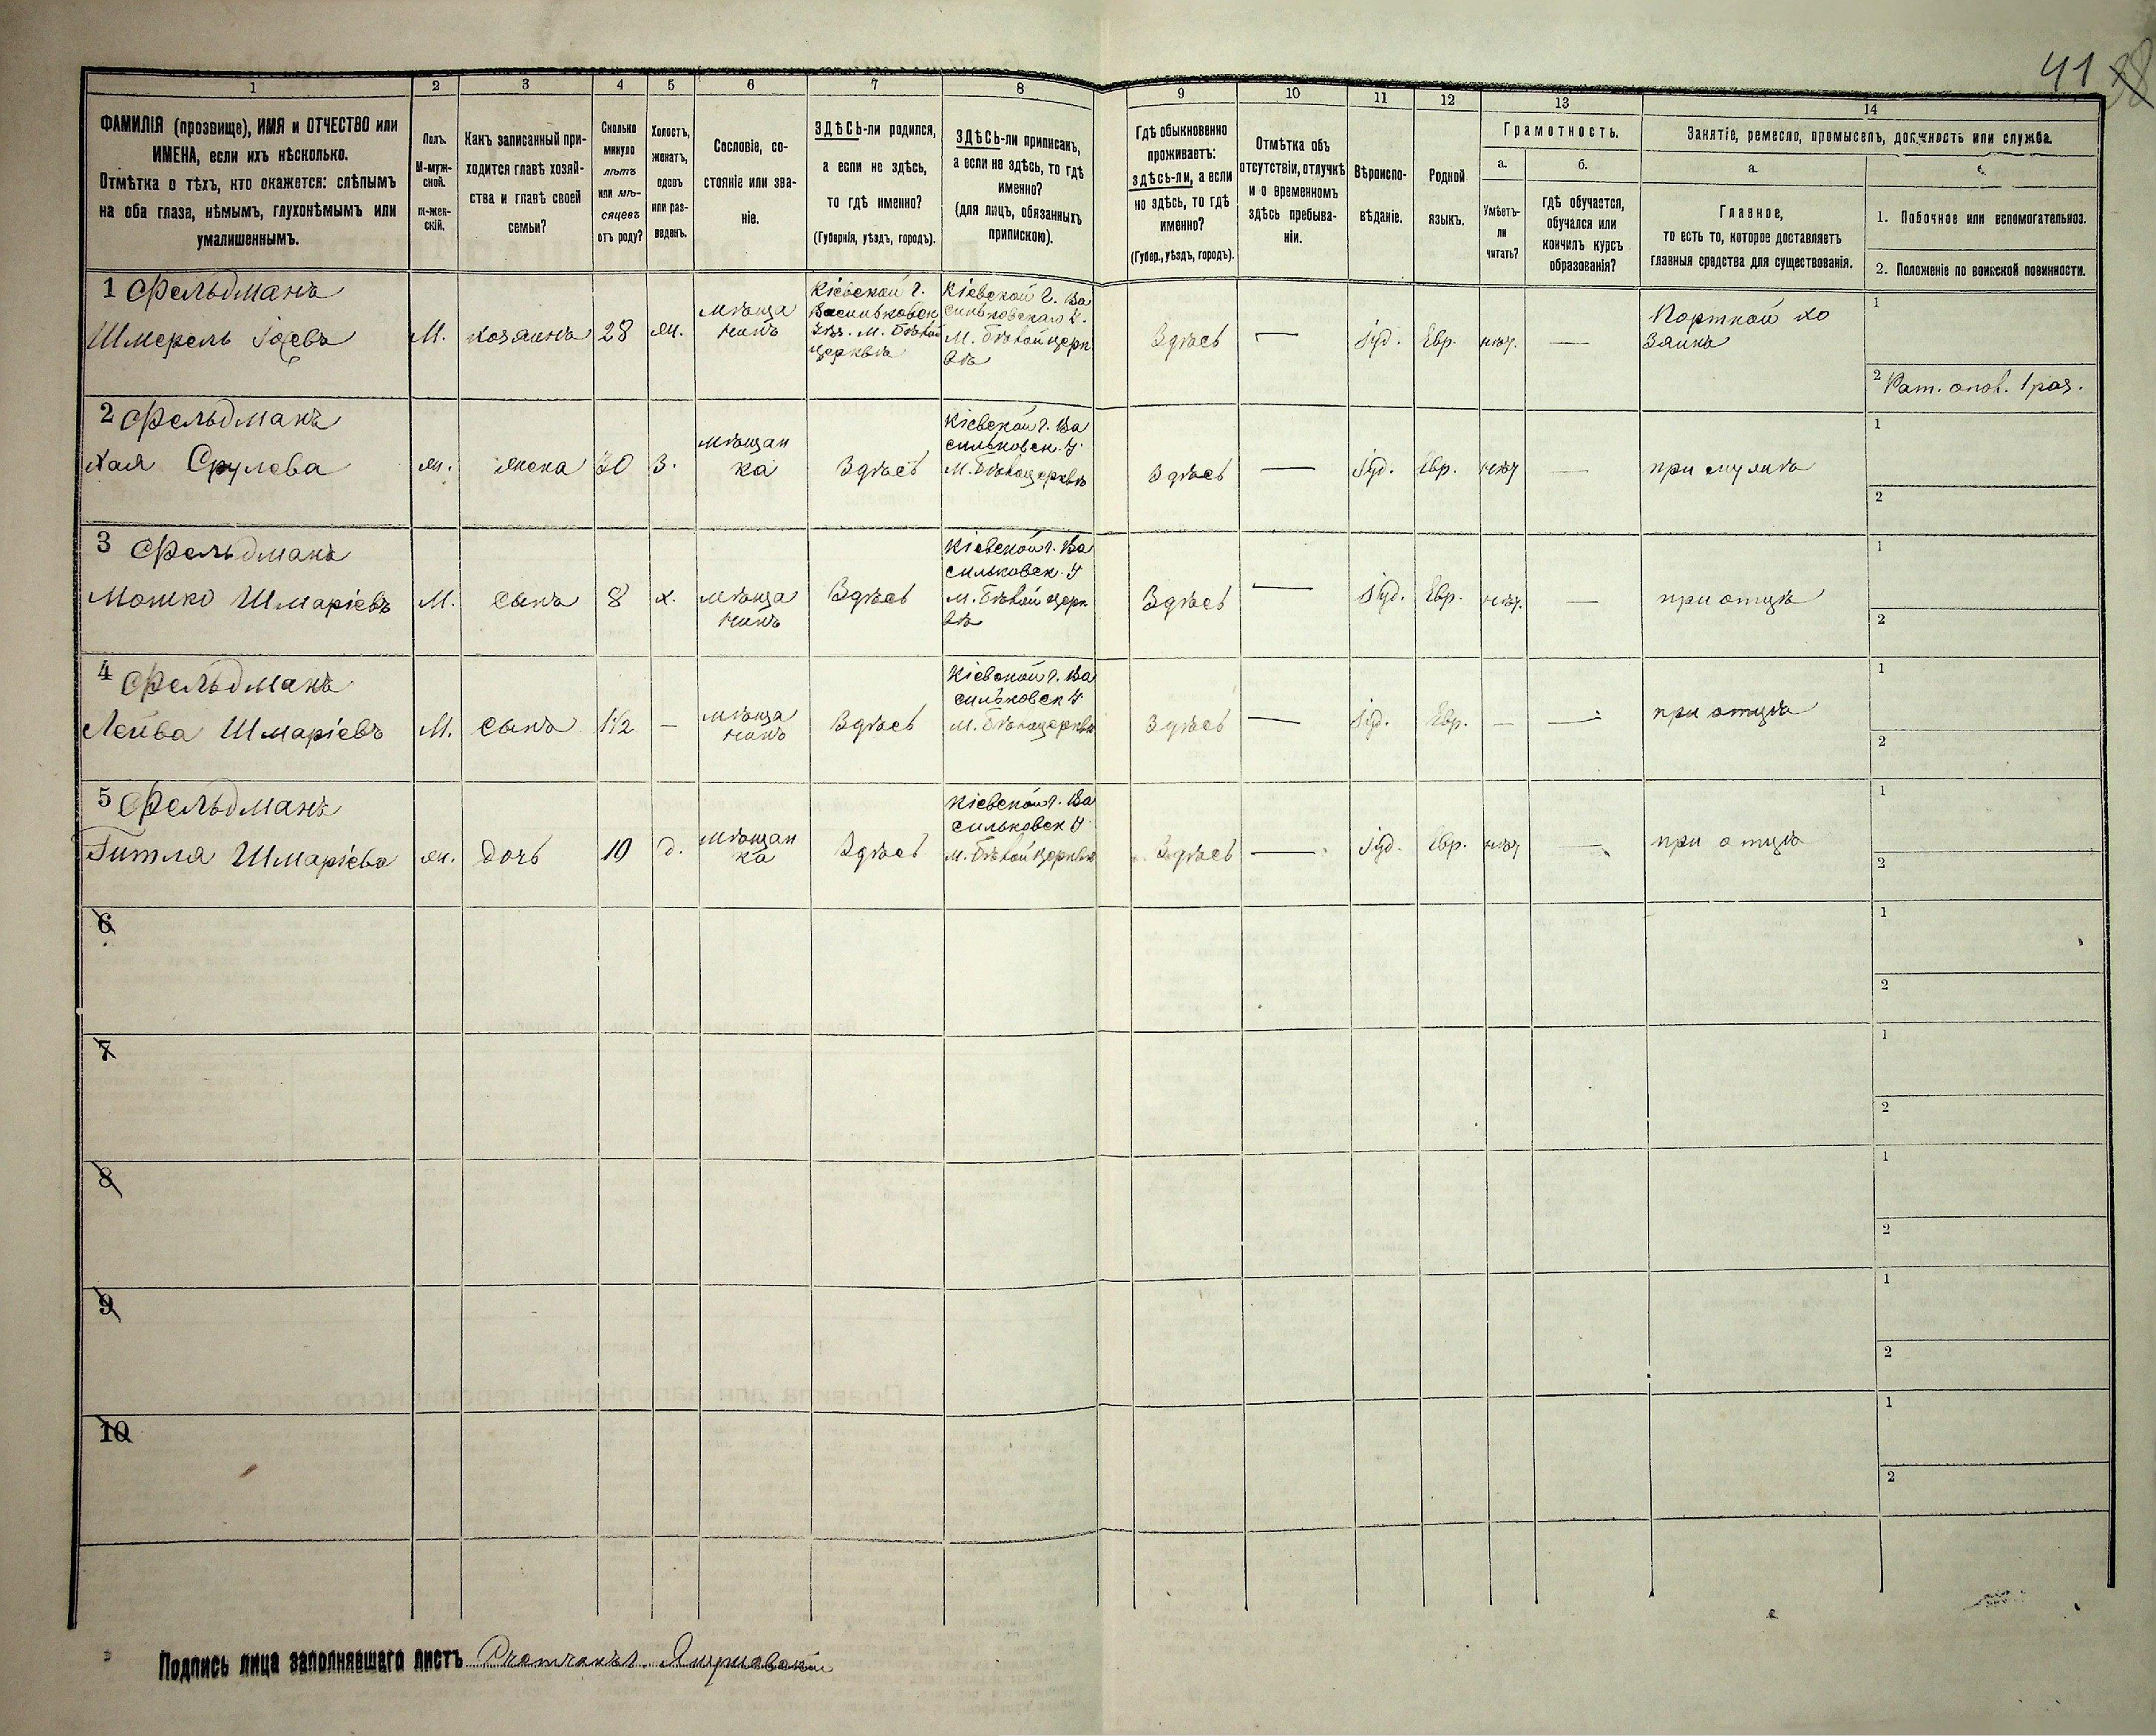 41 38
1 2 3 4 5 6 7 8 9 10 11 12 13 14
ФАМИЛІЯ (прозвище), ИМЯ и ОТЧЕСТВО или
ИМЕНА, если ихъ нѣсколько.
Отмѣтка о тѣхъ, кто окажется: слѣпымъ
на оба глаза, нѣмымъ, глухонѣмымъ или
умалишеннымъ.
Полъ.
М-муж-
ской.
ж-жен-
скій.
Какъ записанный при-
ходится главѣ хозяй-
ства и главѣ своей
семьи?
Сколько
минуло
лѣтъ
или мѣ-
сяцевъ
отъ роду?
Холостъ,
женатъ,
вдовъ
или раз-
веденъ.
Сословіе, со-
стояніе или зва-
ніе.
ЗДѢСЬ-ли родился,
а если не здѣсь,
то гдѣ именно?
(Губернія, уѣздъ, городъ).
ЗДѢСЬ-ли приписанъ,
а если не здѣсь, то гдѣ
именно?
(для лицъ, обязанныхъ
припискою).
Гдѣ обыкновенно
проживаетъ:
здѣсь-ли, а если
не здѣсь, то гдѣ
именно?
(Губер., уѣздъ, городъ).
Отмѣтка объ
отсутствіи, отлучкѣ
и о временномъ
здѣсь пребыва-
ніи.
Вѣроиспо-
вѣданіе.
Родной
языкъ.
Грамотность.
а.
Умѣетъ-
ли
читать?
б.
гдѣ обучается,
обучался или
кончилъ курсъ
образованія?
Занятіе, ремесло, промыселъ, должность или служба.
а.
Главное,
то есть то, которое доставляетъ
главныя средства для существованія.
1. Побочное или вспомогательное.
2. Положеніе по воинской повинности.
1 Фельдманъ
Шмерель
М.
хозяинъ
28
ж.
мѣща
нинъ
Кіевской г.
Васильковск
уѣз. м. Бѣлой
Церквѣ
Кіевской г. Ва
сильковскаго у.
м. Бѣлой церк
вѣ
Здѣсь
—
Іуд.
Евр.
нѣт.
—
Портной хо
зяинъ
1
2 Рат. опол. 1 раз.
2 Фельдманъ
Хая Срулева
ж.
жена
30
З.
мѣщан
ка
Здѣсь
Кіевской г. Ва
сильковск. у.
м. Бѣлоцерквѣ
Здѣсь
—
Іуд.
Евр.
нѣт
—
при мужѣ
1
2
3 Фельдманъ
Мошко Шмаріевъ
М.
сынъ
8
х.
мѣща
нинъ
Здѣсь
Кіевской г. Ва
сильковск. у
м. Бѣлой церк
вѣ
Здѣсь
—
Іуд.
Евр.
нѣт.
—
при отцѣ
1
2
4 Фельдманъ
Лейба Шмаріевъ
М.
сынъ
1 1/2
—
мѣща
нинъ
Здѣсь
Кіевской г. Ва
сильковск у
м. Бѣлоцерквѣ
Здѣсь
—
Іуд.
Евр.
—
—
при отцѣ
1
2
5 Фельдманъ
Гитля Шмаріева
ж.
дочь
10
д.
мѣщан
ка
Здѣсь
Кіевской г. Ва
сильковск у
м. Бѣлой Церквѣ
Здѣсь
—
Іуд.
Евр.
нѣт
—
при отцѣ
1
2
6
1
2
7
1
2
8
1
2
9
1
2
10
1
2
Подпись лица заполнявшаго листъ